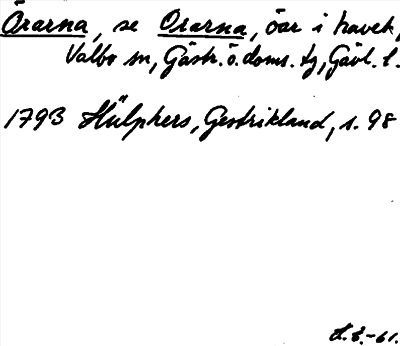 Örarna, se Orarna, öar i havet,
Valbo sn, Gästr. ö. doms. tg, Gävl. l.
1793 Hülphers, Gestrikland, s. 98
-61.